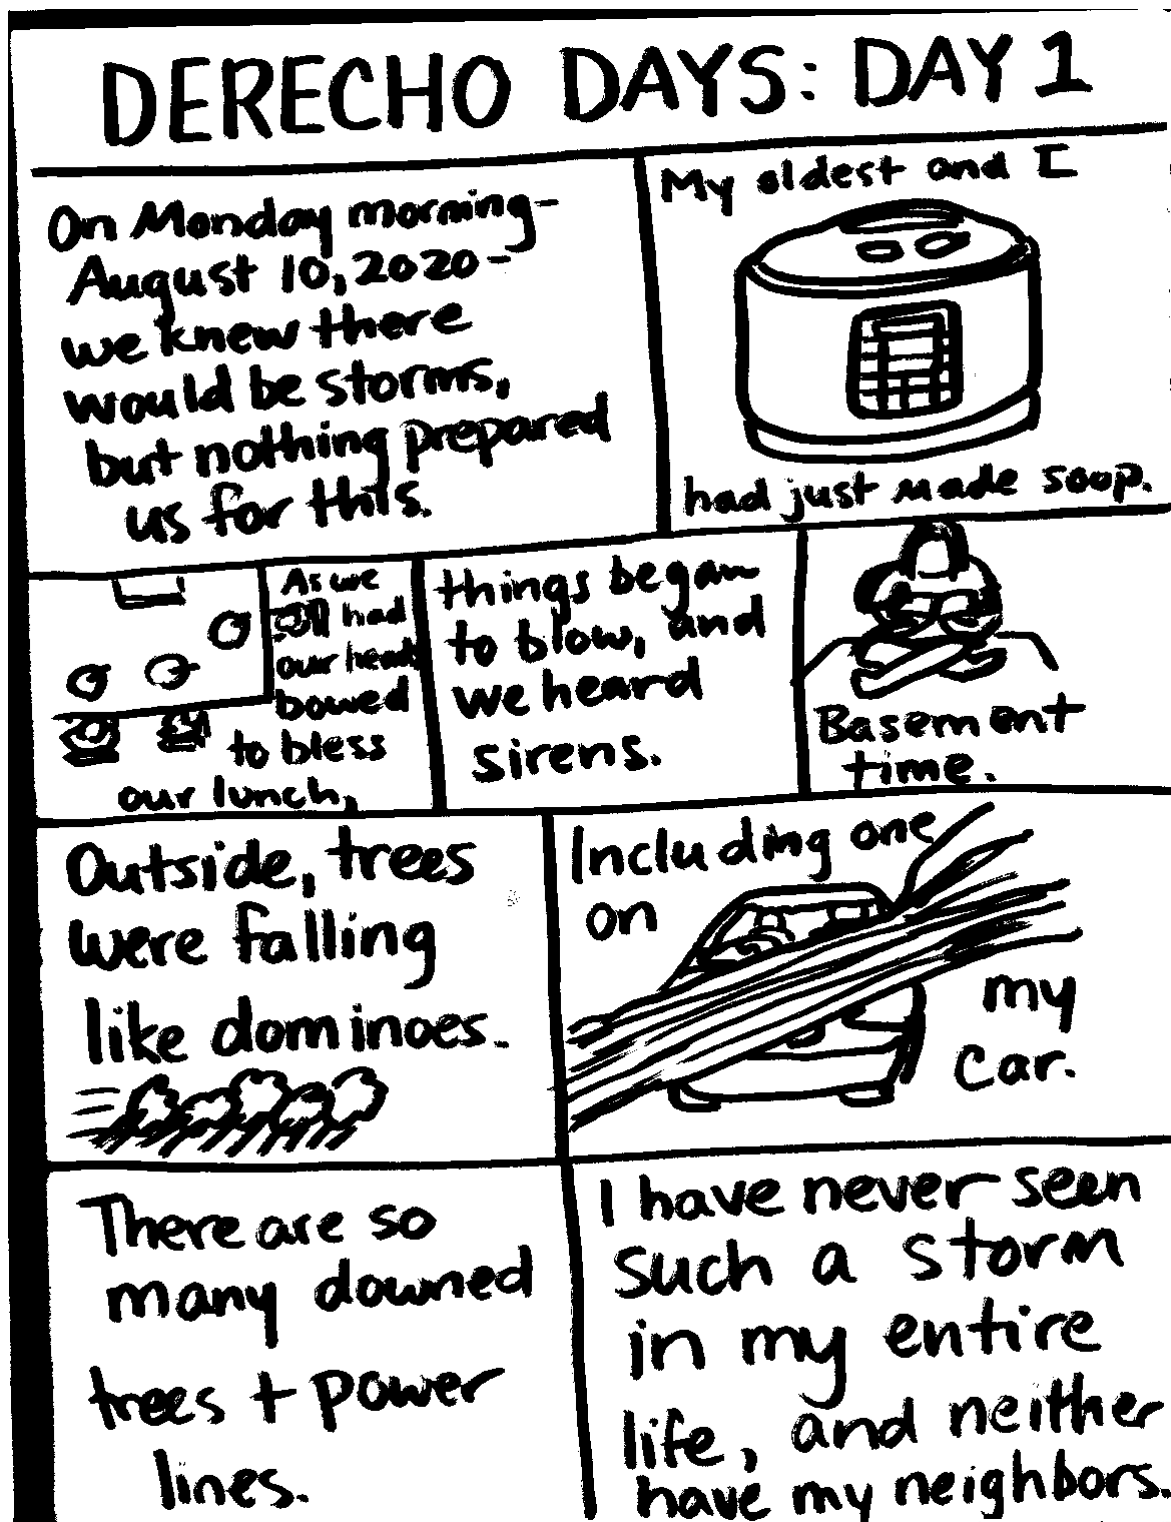 DERECHO DAYS: DAY 1
On Monday morning-
August 10, 2020-
we knew there
would be storms,
but nothing prepared
us for this.
My oldest and I
had just made soup.
As we
all had
our heads
bowed
to bless
our lunch,
things began
to blow, and
we heard
sirens.
Basement
time.
Outside, trees
were falling
like dominoes.
Including one
on
my
car.
There are so
many downed
trees + power
lines.
I have never seen
such a storm
in my entire
life, and neither
have my neighbors.